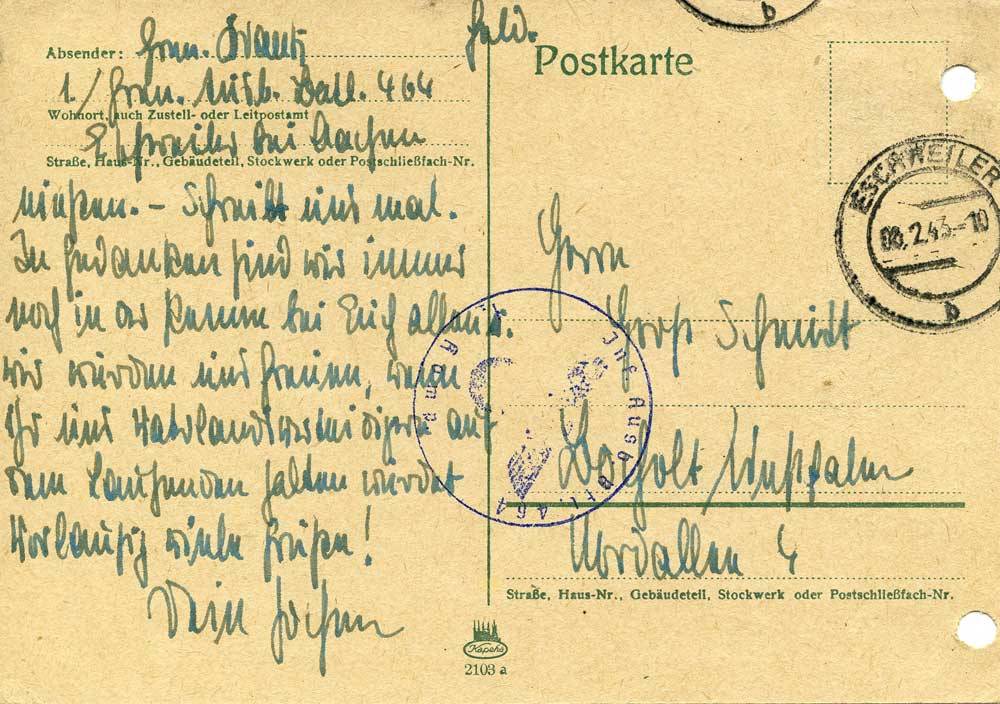 Absender: Gren. Brantz
1./Gren. Ausb. Batl. 464
Wohnort, auch Zustell- oder Leitpostamt
Eschweiler bei Aachen
Straße, Haus-Nr., Gebäudeteil, Stockwerk oder Postschließfach-Nr.
müßen. – Schreibt uns mal.
In Gedanken sind wir immer
noch in der Penne bei Euch allen u.
wir würden uns freuen, wenn
Ihr uns Vaterlandsverteidiger auf
dem Laufenden halten würdet
Vorläufig viele Grüße!
Dein Jochen
Feld.
Postkarte
ESCHWEILER
08.2.43.-10
b
b
Herrn
Horst Schmidt
Bocholt/Westfalen
Nordallee 4
Straße, Haus-Nr., Gebäudeteil, Stockwerk oder Postschließfach-Nr.
Inf. Ausb. Btl. 464
Kapehs
2103 a